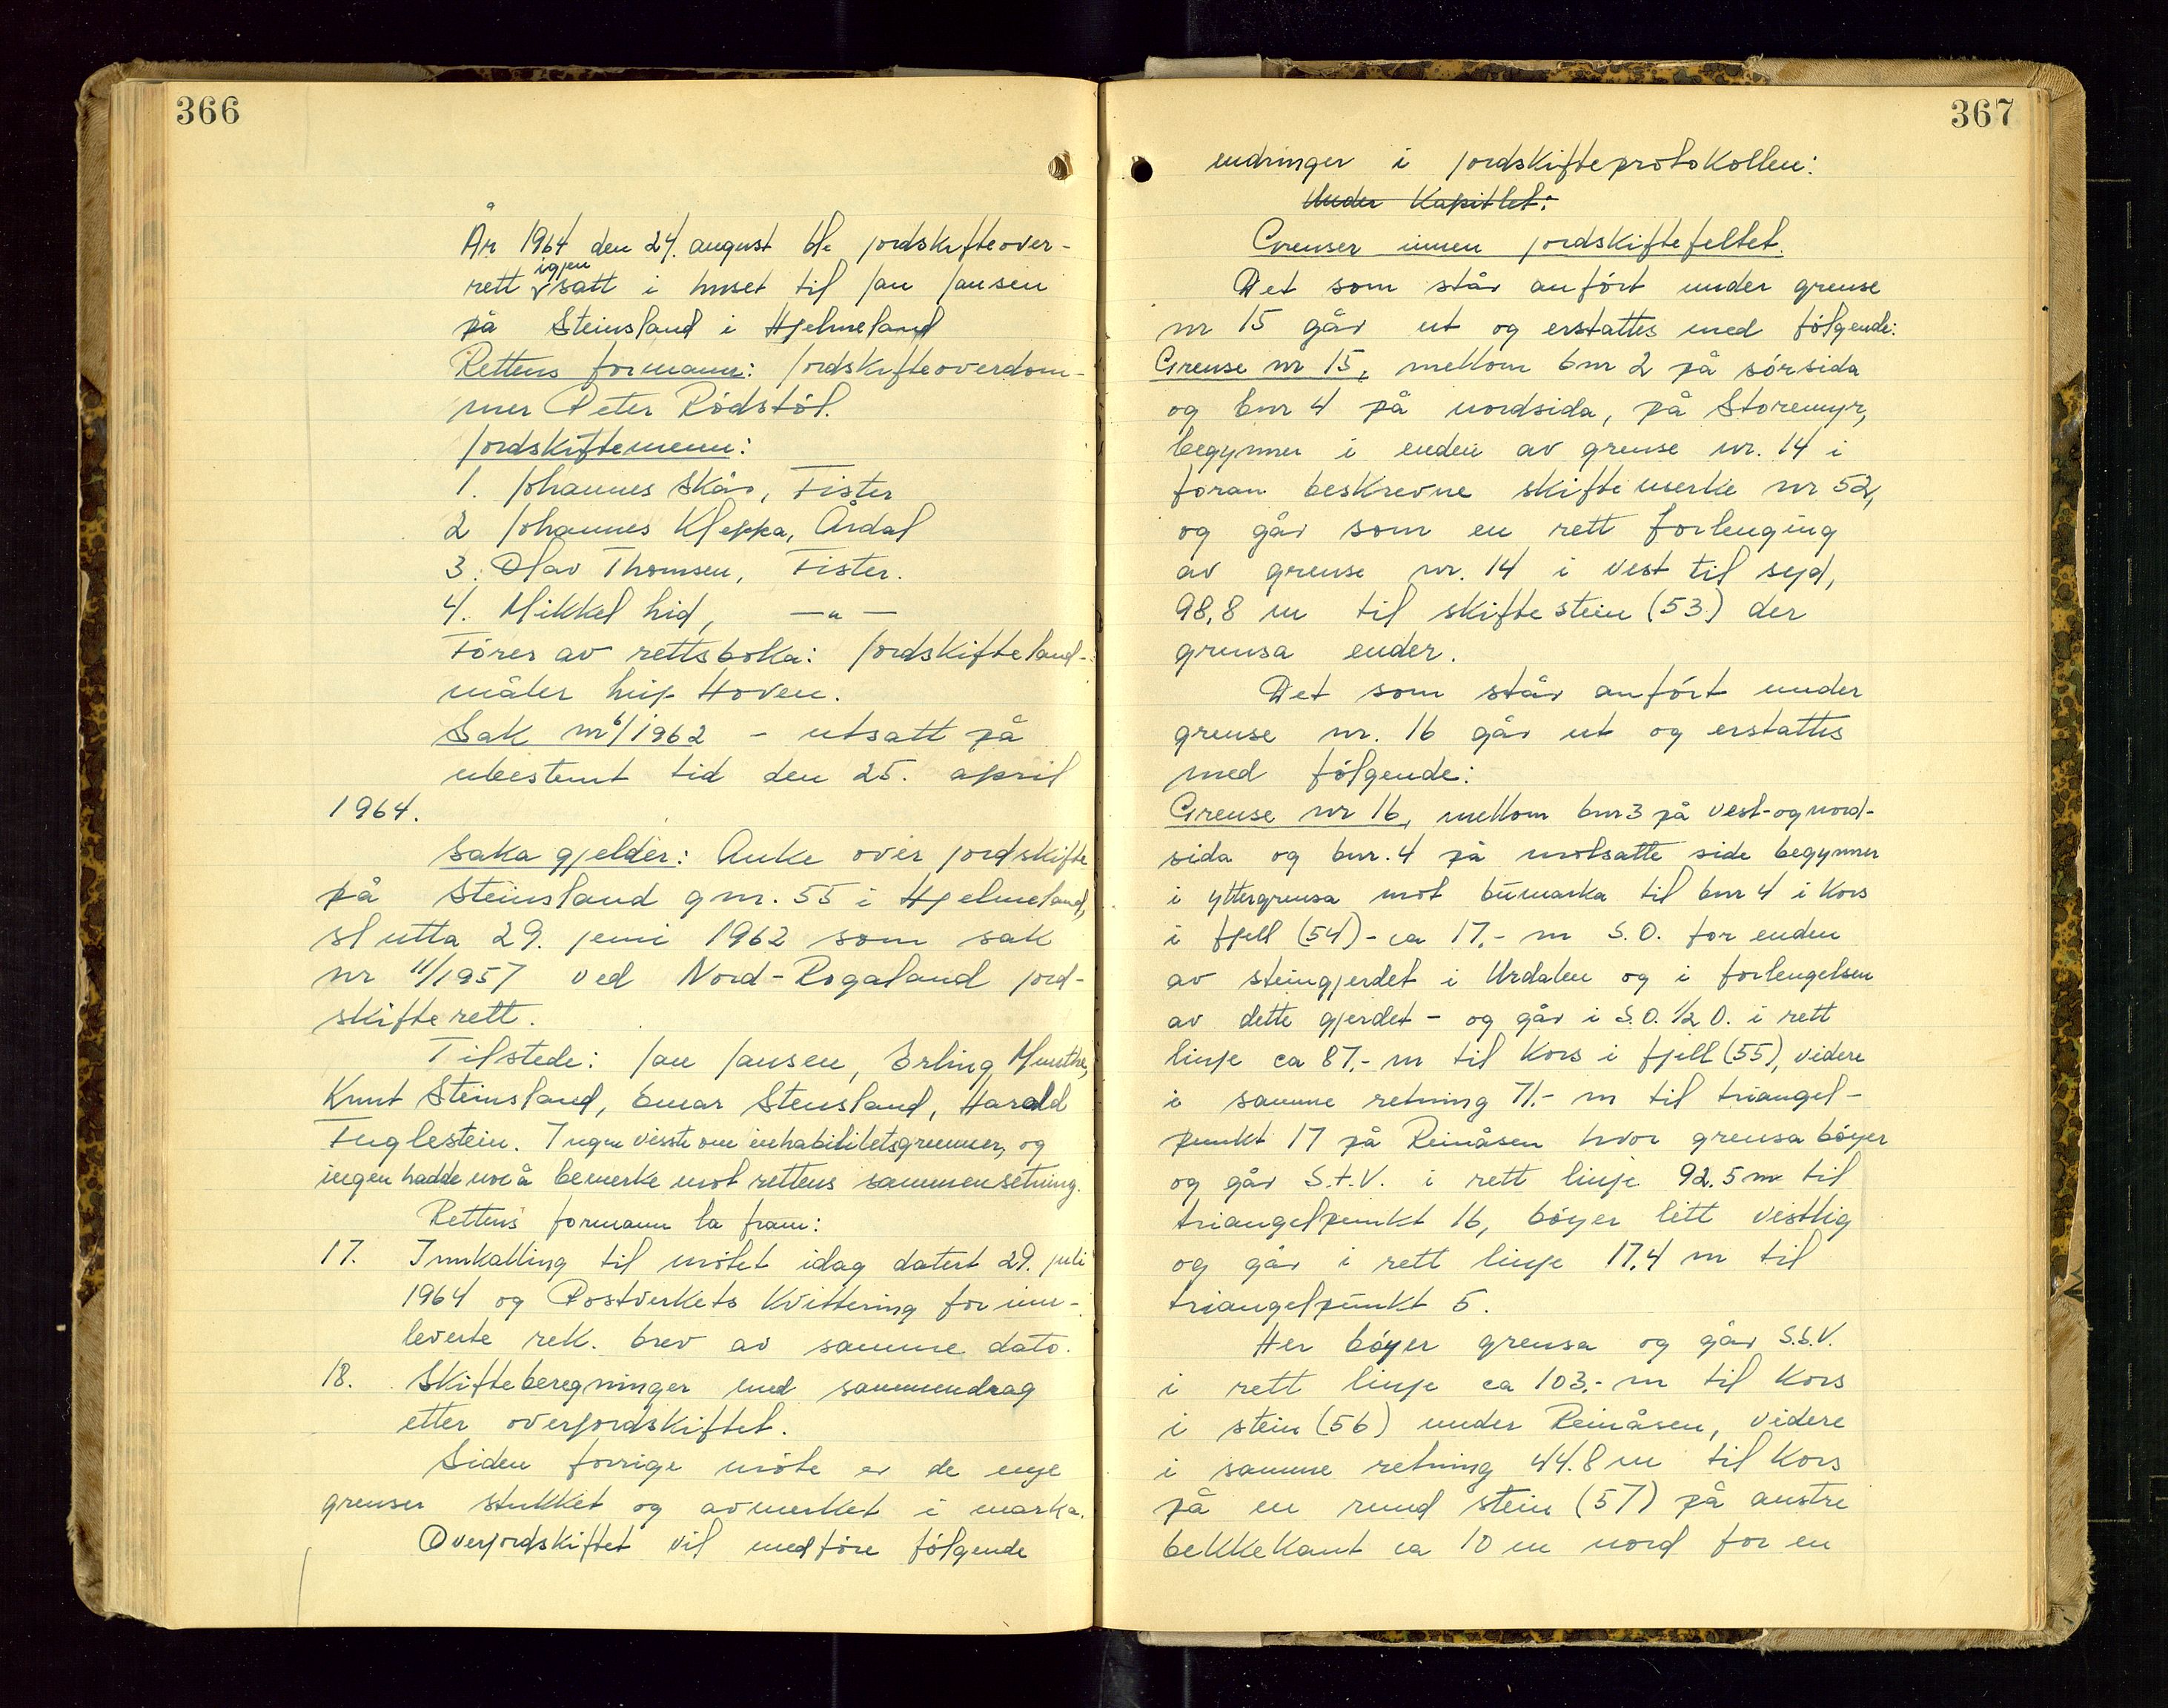 366
År 1964 den 24. august ble jordskifteover-
rett igjen satt i huset til Jan Jansen
på Steinsland i Hjelmeland
Rettens formann: Jordskifteoverdom-
mer Peter Rødstøl.
Jordskiftemenn:
1. Johannes Skår, Fister
2 Johannes Kleppa, Årdal
3. Olav Thomsen, Fister.
4. Mikkel Lid, —"—
Fører av rettsboka: Jordskifteland-
måler Leif Hoven.
Sak nr 6/1962 - utsatt på
ubestemt tid den 25. april
1964.
Saka gjelder: Anke over jordskifte
på Steinsland gnr. 55 i Hjelmeland,
slutta 29. juni 1962 som sak
nr 11/1957 ved Nord-Rogaland jord-
skifterett.
Tilstede: Jan Jansen, Erling Munthe,
Knut Steinsland, Einar Stensland, Harald
Fuglestein. Ingen visste om inhabilitetsgrunner, og
ingen hadde noe å bemerke mot rettens sammensetning.
Rettens formann la fram:
17. Innkalling til møtet idag datert 29. juli
1964 og Postverkets kvittering for inn-
leverte rek. brev av samme dato.
18. Skifteberegninger med sammendrag
etter overjordskiftet.
Siden forrige møte er de nye
grenser stukket og avmerket i marka.
Overjordskiftet vil medføre følgende
367
endringer i jordskifteprotokollen:
Under Kapitlet:
Grenser innen jordskiftefeltet.
Det som står anført under grense
nr 15 går ut og erstattes med følgende:
Grense nr 15, mellom bnr 2 på sørsida
og bnr 4 på nordsida, på Storemyr,
begynner i enden av grense nr. 14 i
foran beskrevne skiftemerke nr 52,
og går som en rett forlenging
av grense nr. 14 i vest til syd,
98,8 m til skiftestein (53) der
grensa ender.
Det som står anført under
grense nr. 16 går ut og erstattes
med følgende:
Grense nr 16, mellom bnr 3 på vest- og nord-
sida og bnr. 4 på motsatte side begynner
i yttergrensa mot bumarka til bnr 4 i kors
i fjell (54) - ca 17,- m S.O. for enden
av steingjerdet i Urdalen og i forlengelsen
av dette gjerdet - og går i S.O. ½ O. i rett
linje ca 87,- m til kors i fjell (55), videre
i samme retning 71.- m til triangel-
punkt 17 på Reinåsen hvor grensa bøyer
og går S.t.V. i rett linje 92.5 m til
triangelpunkt 16, bøyer litt vestlig
og går i rett linje 17,4 m til
triangelpunkt 5.
Her bøyer grensa og går S.S.V.
i rett linje ca 103,- m til kors
i stein (56) under Reinåsen, videre
i samme retning 44.8 m til kors
på en rund stein (57) på austre
bekkekant ca 10 m nord for en